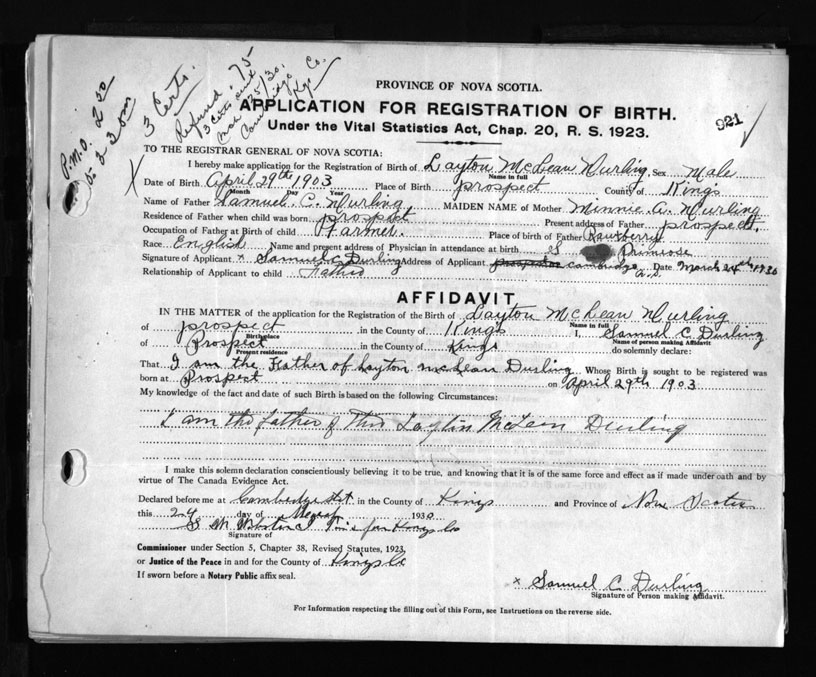 PROVINCE OF NOVA SCOTIA.
APPLICATION FOR REGISTRATION OF BIRTH.
Under the Vital Statistics Act, Chap. 20, R. S. 1923.
921
P.M.O. 2 50
3 Certs.
Refund .75
3 Certs sent
Cambridge, Co.
TO THE REGISTRAR GENERAL OF NOVA SCOTIA:
I hereby make application for the Registration of Birth of Layton McLean Durling Sex Male
Name in full
Date of Birth April 29th 1903 Place of Birth prospect County Kings
Month Day Year
Name of Father Samuel C. Durling MAIDEN NAME of Mother Minnie A. Durling
Residence of Father when child was born prospect Present address of Father prospect.
Occupation of Father at Birth of child Farmer. Place of birth of Father
Race English Name and present address of Physician in attendance at birth S Primrose
Signature of Applicant x Samuel C Durling Address of Applicant Cambridge Date March 24th 1930
Relationship of Applicant to child Father
AFFIDAVIT
IN THE MATTER of the application for the Registration of the Birth of Layton McLean Durling
Name in full
of prospect in the County of Kings I, Samuel C Durling
Birthplace Name of person making Affidavit
of Prospect in the County of Kings do solemnly declare:
Present residence
That I am the Father of Layton McLean Durling Whose Birth is sought to be registered was
born at Prospect on April 29th 1903
My knowledge of the fact and date of such Birth is based on the following Circumstances:
I am the father of this Layton McLean Durling
I make this solemn declaration conscientiously believing it to be true, and knowing that it is of the same force and effect as if made under oath and by
virtue of The Canada Evidence Act.
Declared before me at Cambridge Sta in the County of Kings and Province of Nova Scotia
this 24 day of March 1930
for Kings Co
Signature of
Commissioner under Section 5, Chapter 38, Revised Statutes, 1923,
or Justice of the Peace in and for the County of Kings Co
If sworn before a Notary Public affix seal.
x Samuel C Durling
Signature of Person making Affidavit.
For Information respecting the filling out of this Form, see Instructions on the reverse side.